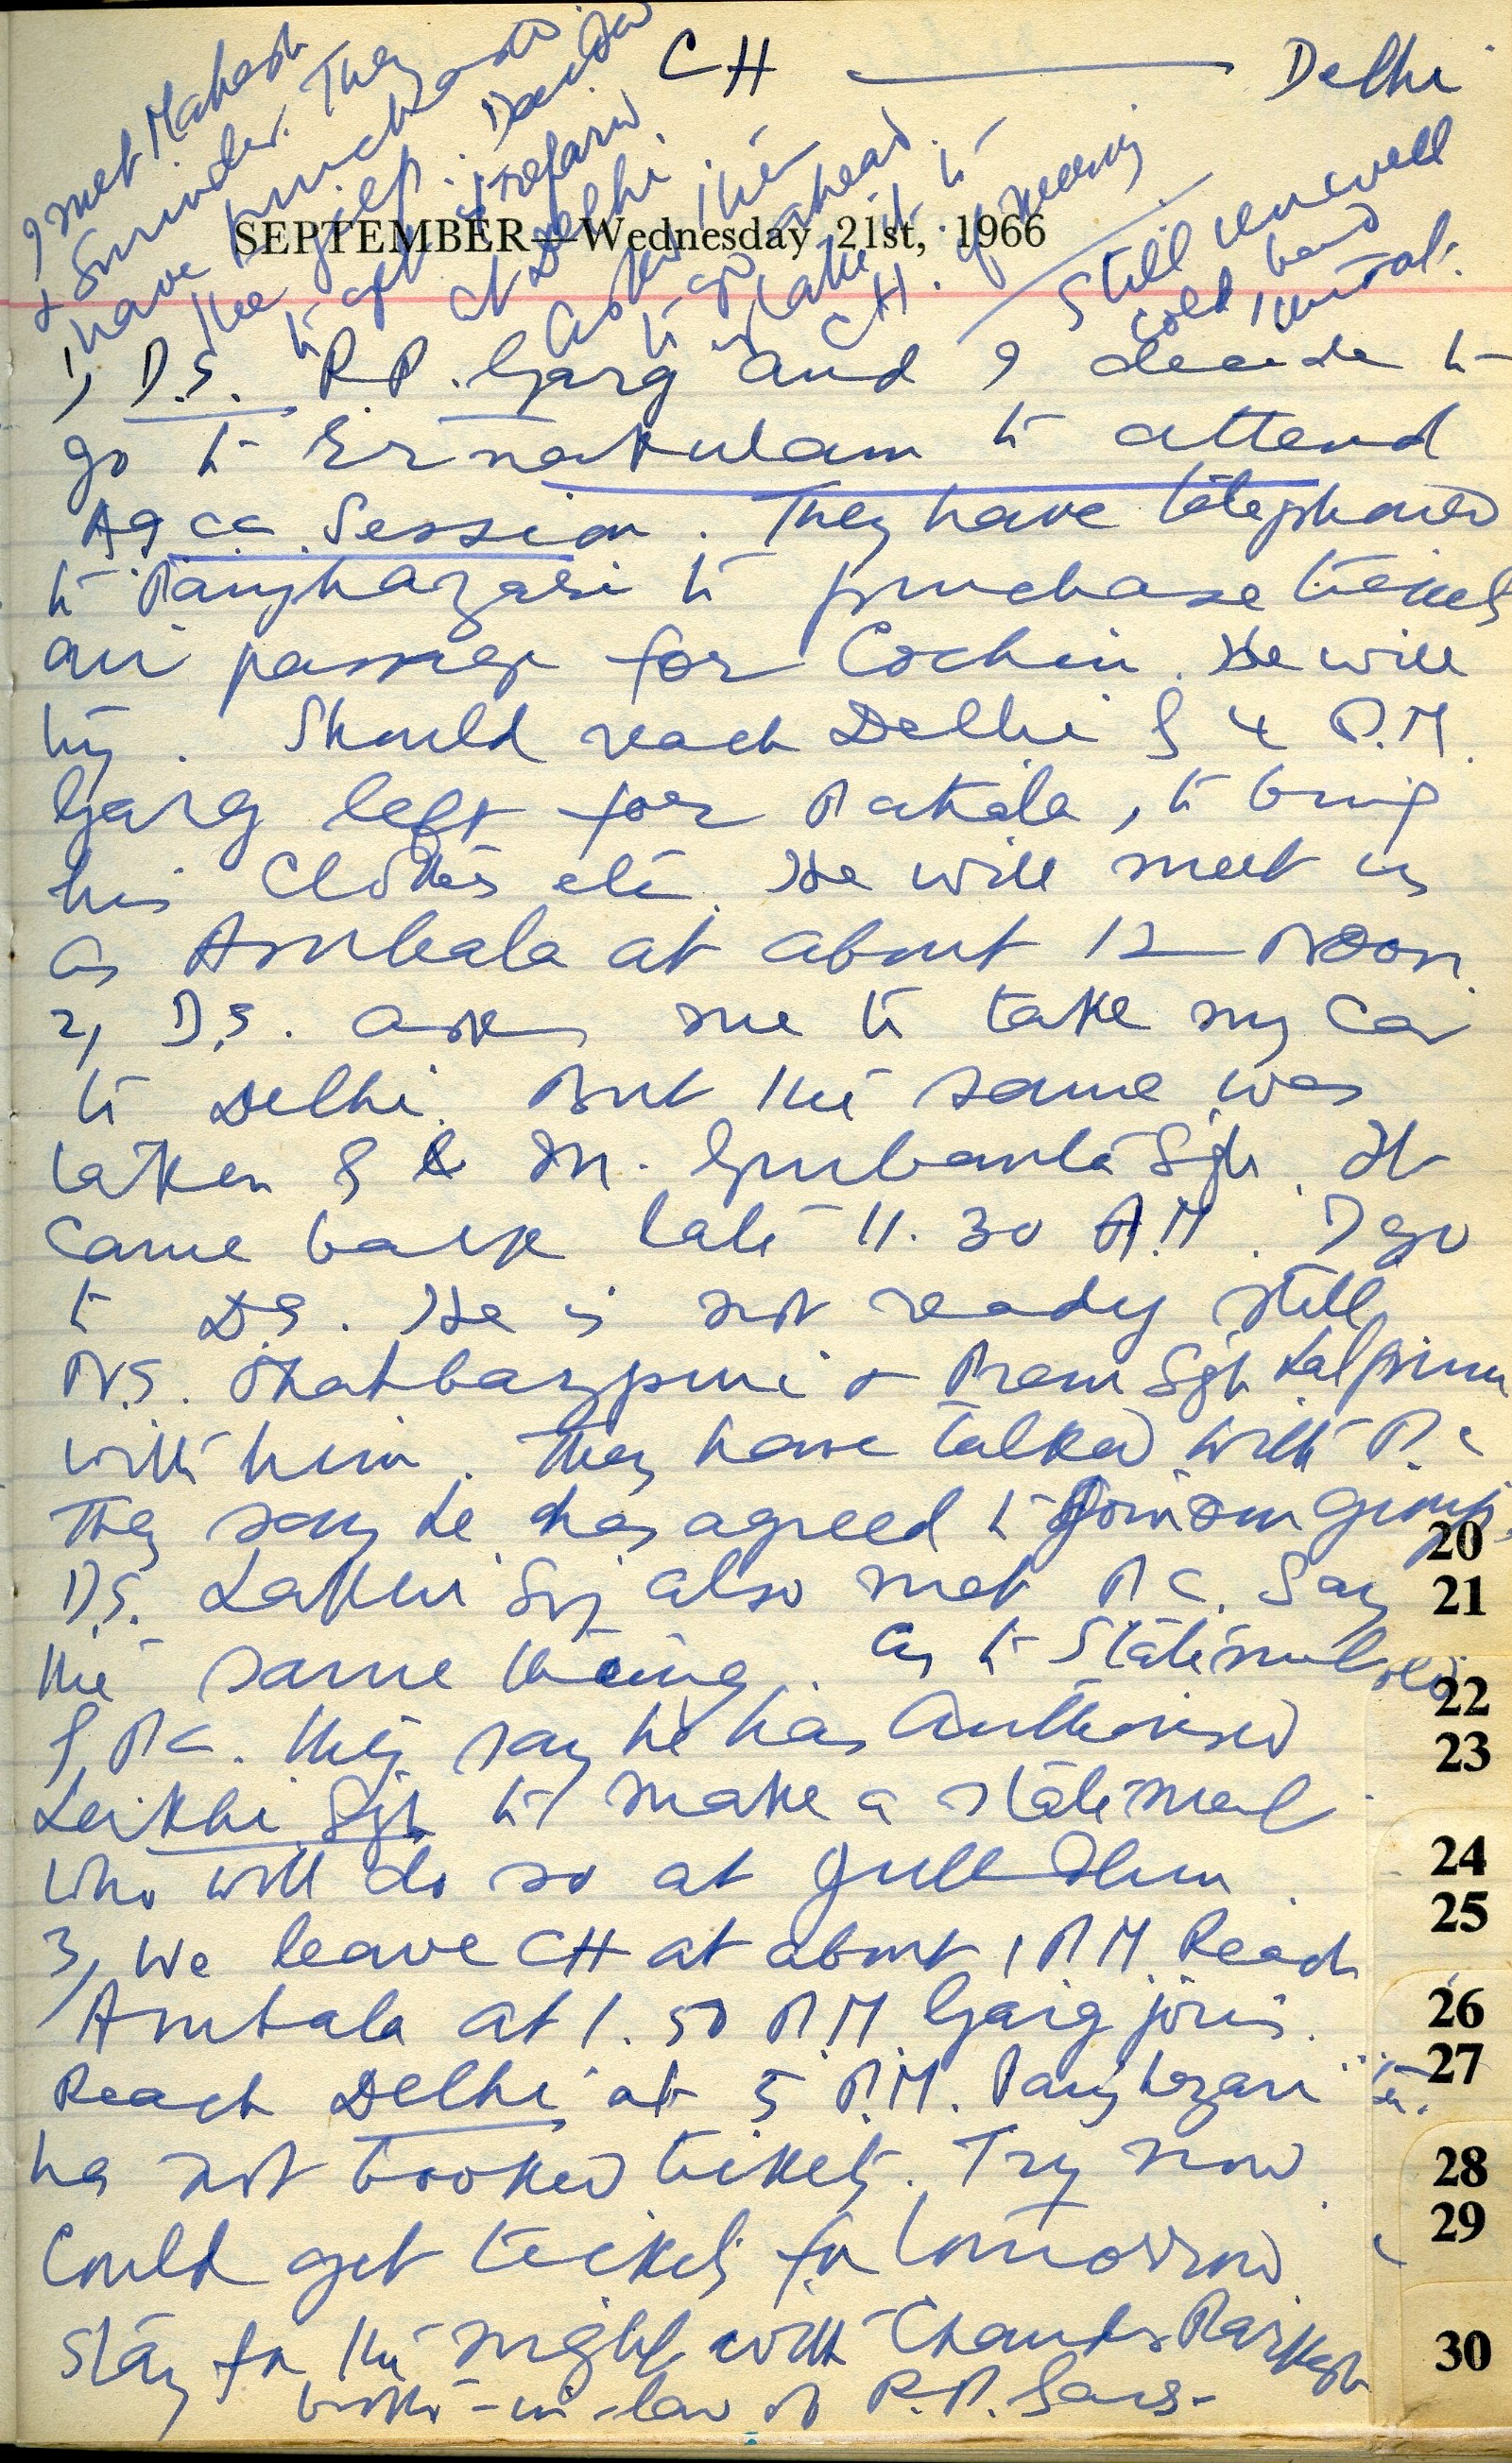 CH — Delhi
I met Mahesh
& Surinder. They
have purchased
the jeep.
to get
at Delhi.
to go ahead.
& take it to
CH.
Still unwell
cold, bad
throat.
SEPTEMBER—Wednesday 21st, 1966
1, D.S. R.P. Garg and I decide to
go to Ernakulam to attend
AICC Session. They have telephoned
to Panjhazari to purchase tickets
air passage for Cochin. He will
try. Should reach Delhi by 4 P.M.
Garg left for Patiala, to bring
his clothes etc. He will meet us
as Ambala at about 12 Noon.
2, D.S. asks me to take my car
to Delhi. But the same was
taken by M. Gurbanta Sgh. It
came back late 11.30 A.M. I go
to D.S. He is not ready still
& Prem Sgh Lalpura
with him. They have talked with P.C
They say he has agreed to join our group.
D.S. also met P.C. Say
the same thing. As to Statement
of P.C. they say he has authorised
Sgh to make a statement
who will do so at
3, We leave CH at about 1 P.M. Reach
Ambala at 1.50 P.M. Garg joins.
Reach Delhi at 5 P.M. Panjhazari
has not booked tickets. Try now
Could get tickets for tomorrow
Stay for the night with
brother-in-law of R.P. Garg.
20
21
22
23
24
25
26
27
28
29
30